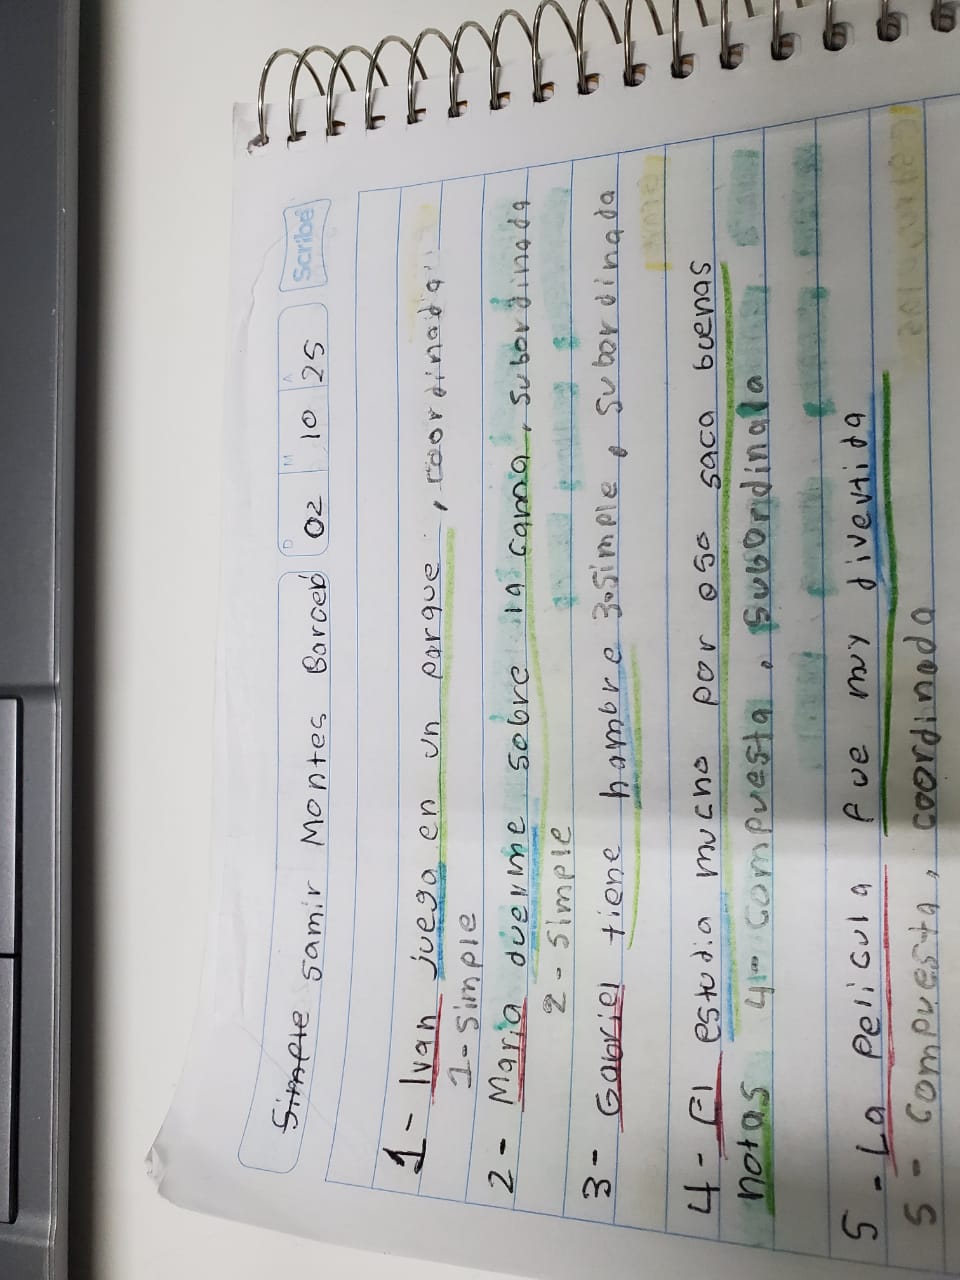 Simple Samir Montes Barceb
D M A
02 10 25
Scribe
1- Ivan juega en un parque, coordinada
1-Simple
2- Maria duerme sobre la cama, subordinada
2- Simple
3- Gabriel tiene hambre 3.Simple, subordinada
4- El estudia mucho por eso saca buenas
notas 4- compuesta, subordinala
5- La pelicula fue muy divertida
5- compuesta, coordinada